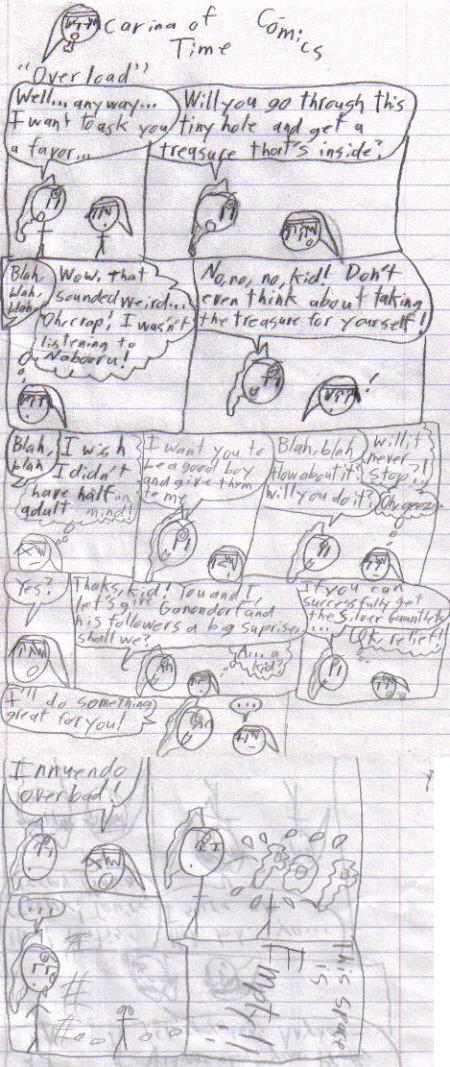 Carina of
Time
Comics
"Overload"
Well... any way...
I want to ask you
a favor...
Will you go through this
tiny hole and get a
treasure that's inside?
Blah,
blah,
blah
Wow, that
sounded weird...
Oh, crap! I wasn't
listening to
Nabooru!
No, no, no, kid! Don't
even think about taking
the treasure for yourself!
!
Blah,
blah
I wish
I didn't
have half an
adult mind!
I want you to
be a good boy
and give them
to me
Blah, blah
How about it?
Will you do it?
Will it
never
stop?!
Oh, geez
Yes?
Thaks, kid! You and I,
let's give Ganondorf and
his followers a big suprise,
shall we?
A... a
kid?
If you can
successfully get
the Silver Gauntlets
...
OK, relief!
I'll do something
great for you!
...
Innuendo
overbad!
...
This space
is
Empty!!